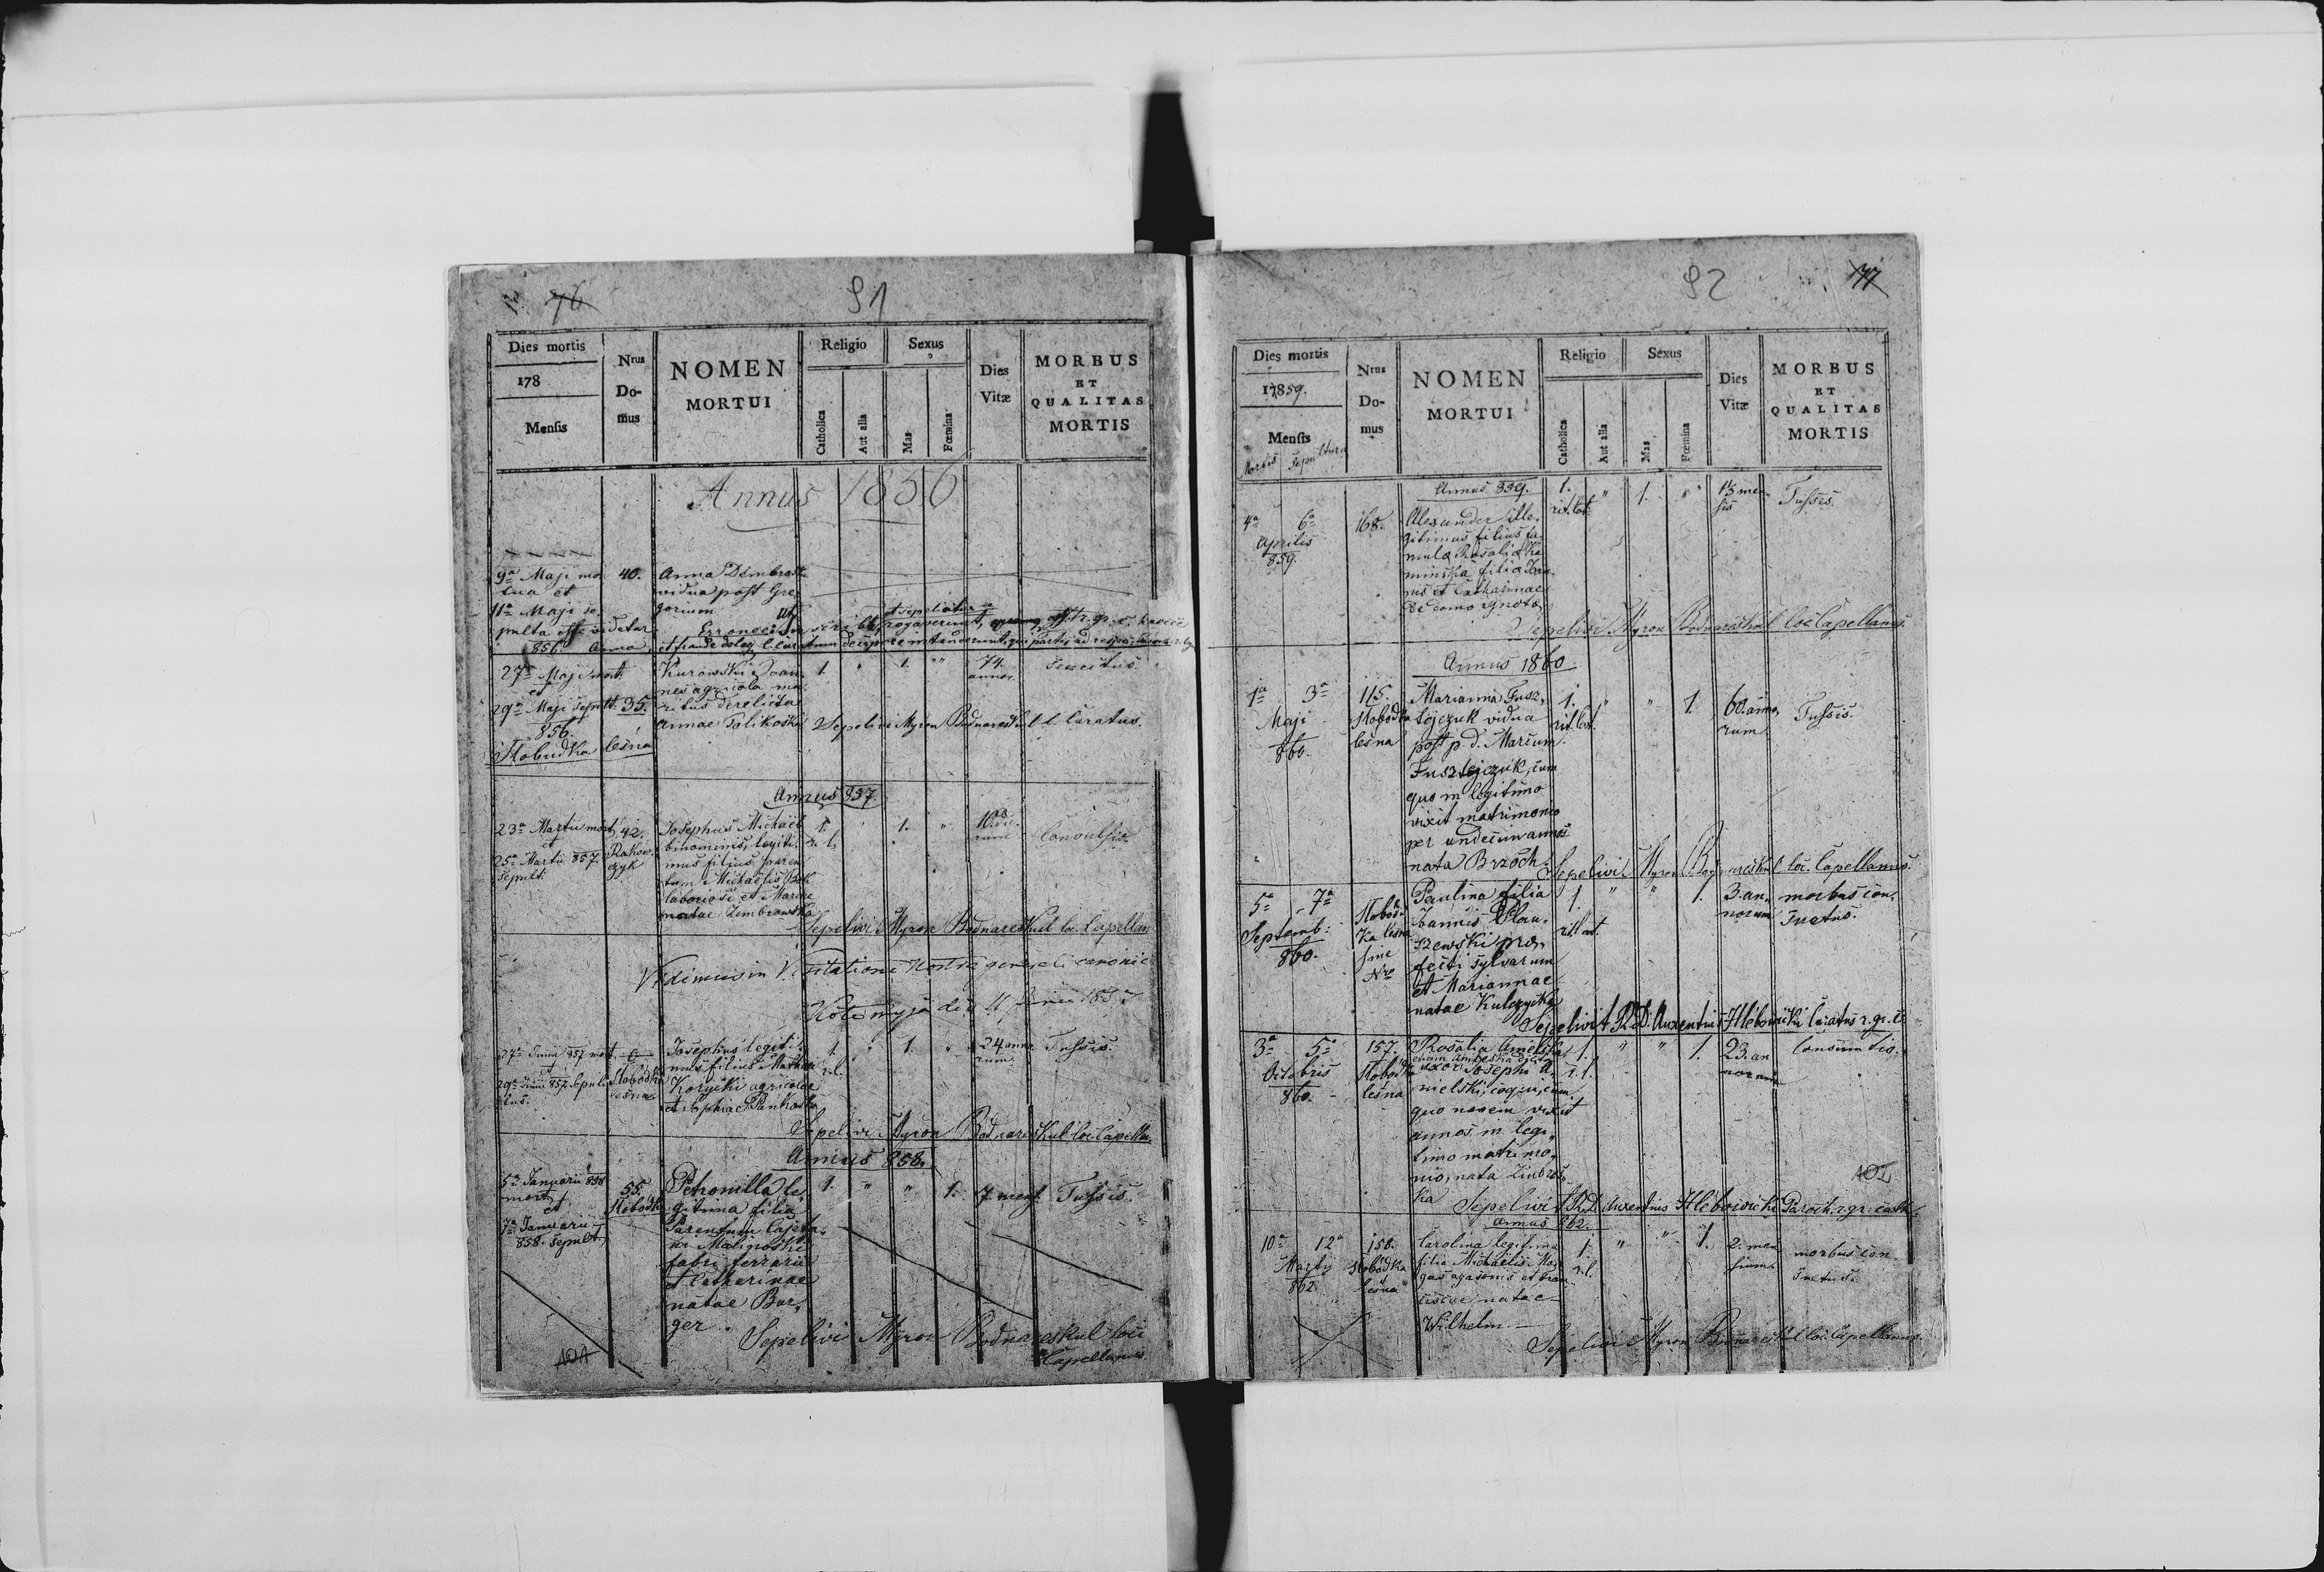 76
91
Dies mortis
178
Mensis
Nrus
Do-
mus
NOMEN
MORTUI
Religio
Catholica
Aut alia
Sexus
Mas
Fœmina
Dies
Vitæ
MORBUS
ET
QUALITAS
MORTIS
Annus 1856
9a Maji mor
tua et
11a Maji se,
pulta esse videtur
856.
40.
Anna Dembroska
vidua post Gre,
gorium
27a Maji mort.
et
29a Maji sepult.
856.
Slobudka lesna
35.
Kurowski Joan,
nes agricola ma,
ritus derelictae
Annae Polikoska
1. " 1. "
74.
annor.
Senectus.
Sepelivi Myron Bodnareskul l. l. Curatus.
Annus 857
23a Martii mort.
et
25a Martii 857.
sepult.
42.
Rakow,
czyk
Josephus Michael
binominis, legiti,
mus filius paren,
tum Michaelis
laboriosi et Mariae
natae Zembrowska
1. " 1. "
r. l.
Convulsio.
Sepelivi Myron Bodnareskul loc. Capellan
Vidimus in Visitatione Nostra generali canonic
Kolomyja die 11 Junii 185
27a Junii 857 mort.
29a Junii 857 Sepul
tus.
Slobodka
lesna
Josephus legiti,
mus filius Mathiae
Korzycki agricolae
et Sophiae Pankoska
1. " 1. "
r. l.
24 anno
rum.
Tussis.
Sepelivi Myron Bodnareskul loc. Capellan
Annus 858.
5a Januarii 858
mort.
et
7a Januarii
858. sepult.
55.
Slobodka
Petronilla le,
gitima filia
Parentum Cajeta,
ni Malinoski
fabri ferrarii
et Catharinae
natae Bur,
ger.
1. " " 1.
7. mens.
Tussis.
Sepelivi Myron Bodnareskul loci
Capellanus
101
92
77
Dies mortis
17859.
Mensis
Mortis Sepultura
Nrus
Do-
mus
NOMEN
MORTUI
Religio
Catholica
Aut alia
Sexus
Mas
Fœmina
Dies
Vitæ
MORBUS
ET
QUALITAS
MORTIS
Annus 859.
4a 6a
Aprilis
859.
168.
Alexander ille,
gitimus filius fa,
mula Rosalia Ka
minska filia Joan,
nis et Catharinae
de domo ignota
1. " 1. "
rit. lat.
1½ men
sis
Tussis.
Sepelivi Myron Bodnareskul loc. Capellanus.
Annus 1860
1a 3a
Maji
860.
115.
Slobodka
lesna
Marianna Fusz,
tejczuk vidua
post p. d. Marcum
Fusztejczuk, cum
quo in legitimo
vixit matrimonio
per undecim annos
nata Brzoch.
1. " " 1.
rit. lat.
60. anno,
rum
Tussis.
Sepelivi Myron Bodnareskul loc. Capellanus.
5a 7a
Septemb:
860.
Slobod,
ka lesna
sine
Nro
Paulina filia
Joannis
prae,
fecti sylvarum
et Mariannae
natae Kulczycka
1. " " 1.
rit. lat.
3. an,
norum
morbus con,
suetus.
Sepelivit R. D. Auxentius Hlebowicki Curatus r. gr. c.
3a 5a
Octobris
860.
157.
Slobodka
lesna
Rosalia
uxor Josephi
coqui, cum
quo novem vixit
annos in legi,
timo matrimo,
nio, nata
1. " " 1.
r. l.
23. an
norum
Consumtio.
102
Sepelivit R. D. Auxentius Hlebowicki Paroch. r. gr. cath.
Annus 862.
10a 12a
Martij
862.
158.
Slobodka
lesna
Carolina legitima
filia Michaelis
et Fran
ciscae natae
Wilhelm.
1. " " 1.
r. l.
2. men
sium.
morbus con,
suetus.
Sepelivi Myron Bodnareskul loc. Capellanus.